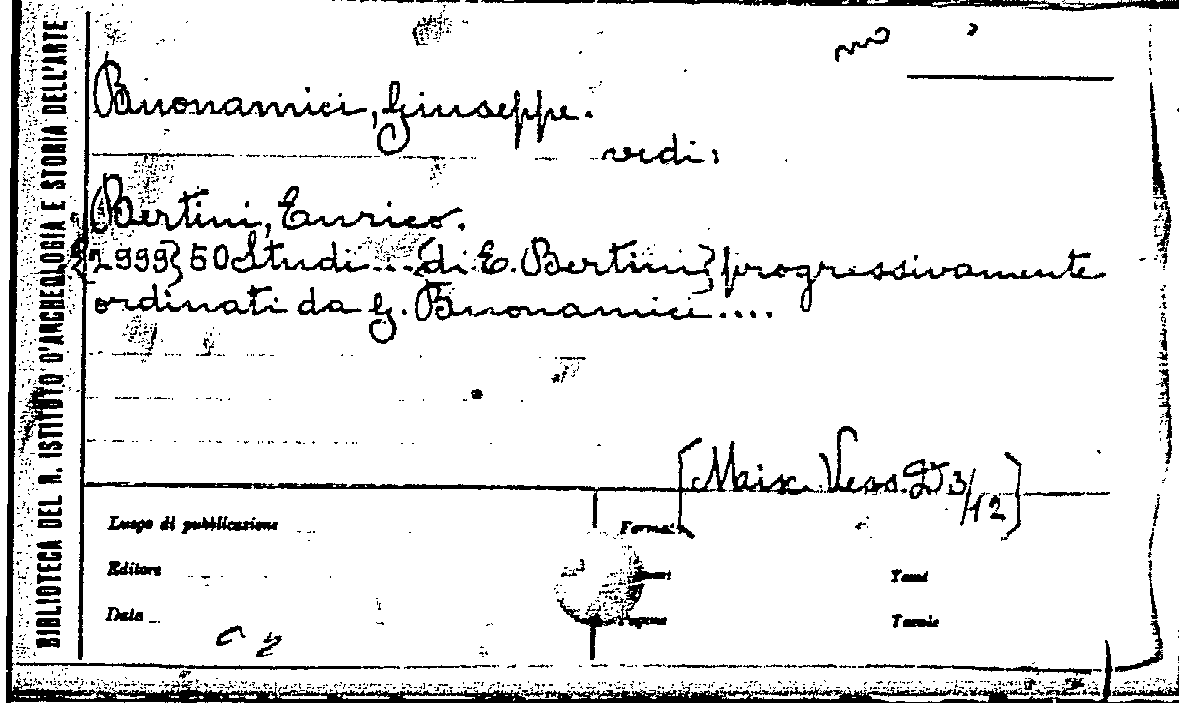 BIBLIOTECA DEL R. ISTITUTO D'ARCHEOLOGIA E STORIA DELL'ARTE
Buonamici, Giuseppe.
vedi:
Bertini, Enrico.
{2999} 50 Studi... {di E. Bertini} progressivamente
ordinati da G. Buonamici....
[Misc. Vess. D 3/12]
Luogo di pubblicazione
Formato
Editore
Tomi
Data
Pagine
Tavole